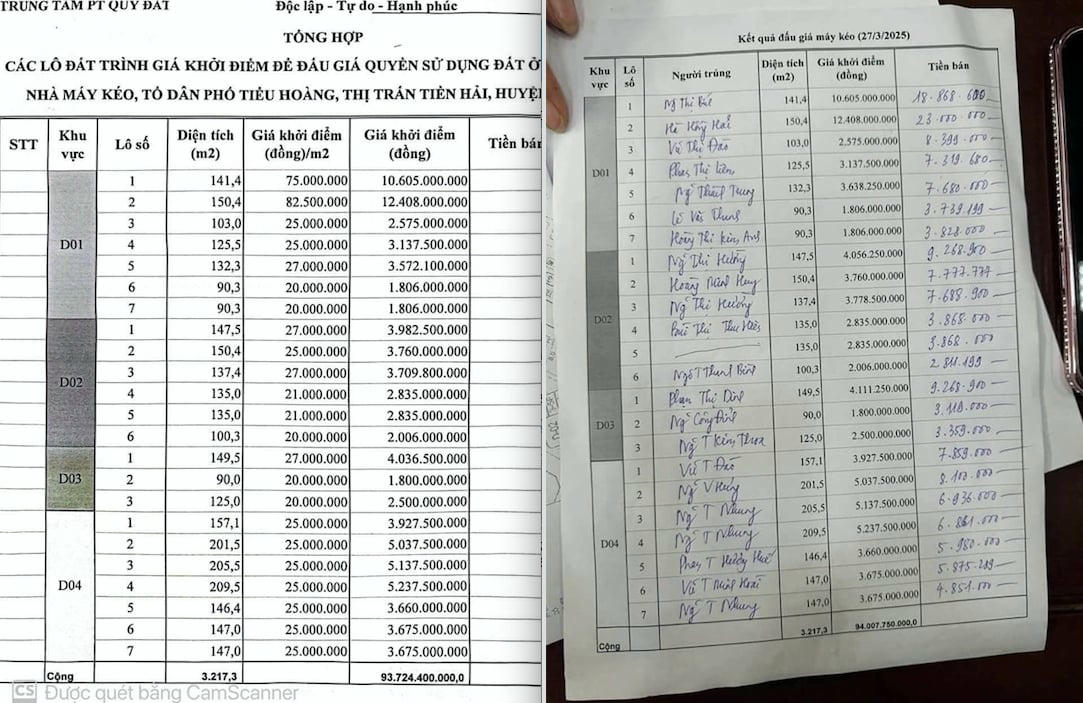 TRUNG TÂM PT QUỸ ĐẤT
Độc lập - Tự do - Hạnh phúc
TỔNG HỢP
CÁC LÔ ĐẤT TRÌNH GIÁ KHỞI ĐIỂM ĐỂ ĐẤU GIÁ QUYỀN SỬ DỤNG ĐẤT Ở
NHÀ MÁY KÉO, TỔ DÂN PHỐ TIỂU HOÀNG, THỊ TRẤN TIỀN HẢI, HUYỆN
STT Khu vực Lô số Diện tích (m2) Giá khởi điểm (đồng)/m2 Giá khởi điểm (đồng) Tiền bán
D01
1 141,4 75.000.000 10.605.000.000
2 150,4 82.500.000 12.408.000.000
3 103,0 25.000.000 2.575.000.000
4 125,5 25.000.000 3.137.500.000
5 132,3 27.000.000 3.572.100.000
6 90,3 20.000.000 1.806.000.000
7 90,3 20.000.000 1.806.000.000
D02
1 147,5 27.000.000 3.982.500.000
2 150,4 25.000.000 3.760.000.000
3 137,4 27.000.000 3.709.800.000
4 135,0 21.000.000 2.835.000.000
5 135,0 21.000.000 2.835.000.000
6 100,3 20.000.000 2.006.000.000
D03
1 149,5 27.000.000 4.036.500.000
2 90,0 20.000.000 1.800.000.000
3 125,0 20.000.000 2.500.000.000
D04
1 157,1 25.000.000 3.927.500.000
2 201,5 25.000.000 5.037.500.000
3 205,5 25.000.000 5.137.500.000
4 209,5 25.000.000 5.237.500.000
5 146,4 25.000.000 3.660.000.000
6 147,0 25.000.000 3.675.000.000
7 147,0 25.000.000 3.675.000.000
Cộng 3.217,3 93.724.400.000,0
CS Được quét bằng CamScanner
Kết quả đấu giá máy kéo (27/3/2025)
Khu vực Lô số Người trúng Diện tích (m2) Giá khởi điểm (đồng) Tiền bán
D01
1 Thị 141,4 10.605.000.000 18.868.600
2 Hồng Hải 150,4 12.408.000.000 23.000.000
3 Vũ Thị Đào 103,0 2.575.000.000 8.399.000
4 Phạm Thị Liên 125,5 3.137.500.000 7.319.680
5 Trung 132,3 3.638.250.000 7.680.000
6 Lê Văn 90,3 1.806.000.000 3.739.199
7 Hoàng Thị Kim Anh 90,3 1.806.000.000 3.828.000
D02
1 Thị Hường 147,5 4.056.250.000 9.268.900
2 Hoàng Minh 150,4 3.760.000.000 7.777.777
3 Thị Hường 137,4 3.778.500.000 7.688.900
4 Thị Thu Hiền 135,0 2.835.000.000 3.868.000
5 135,0 2.835.000.000 3.868.000
6 T Thanh Bình 100,3 2.006.000.000 2.811.199
D03
1 Phạm Thị 149,5 4.111.250.000 9.268.900
2 Công 90,0 1.800.000.000 3.119.000
3 T Kim Thoa 125,0 2.500.000.000 3.359.000
D04
1 Vũ T Đào 157,1 3.927.500.000 7.859.000
2 V Hùng 201,5 5.037.500.000 8.103.000
3 T Nhung 205,5 5.137.500.000 6.936.000
4 T Nhung 209,5 5.237.500.000 6.861.000
5 T Hương Huế 146,4 3.660.000.000 5.980.000
6 Vũ T Hoài 147,0 3.675.000.000 5.875.289
7 T Nhung 147,0 3.675.000.000 4.851.000
Cộng 3.217,3 94.007.750.000,0